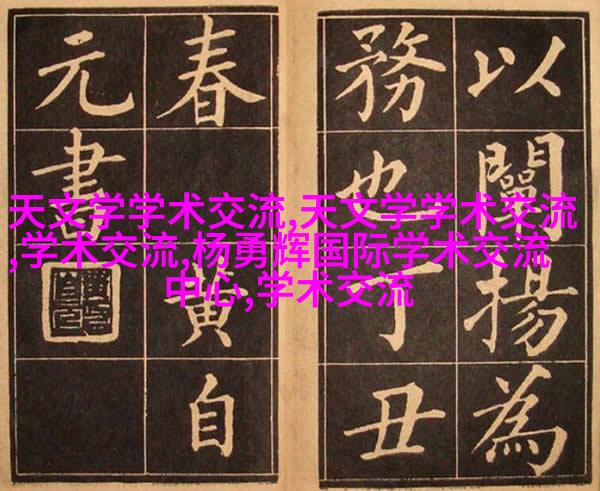 以闡揚為
務也丁丑
春黃自
元書
天文学学术交流,天文学学术交流
,学术交流,杨勇辉国际学术交流
中心,学术交流